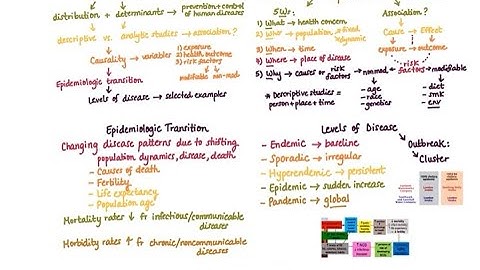 distribution + determinants → prevention + control of human diseases
descriptive vs. analytic studies → association?
Causality → variables
1) exposure
2) health outcome
3) risk factors
modifiable non-mod
Epidemiologic transition
Levels of disease → selected examples
5 Ws:
1) What → health concern
2) Who → population, fixed, dynamic
3) When → time
4) Where → place of disease
5) Why → causes or risk factors
* Descriptive studies = person + place + time
Association?
Cause → Effect
exposure → outcome
risk factors
nonmod.
modifiable
- age
- race
- genetics
- diet
- smk
- env
Epidemiologic Transition
Changing disease patterns due to shifting population dynamics, disease, death
- Causes of death
- Fertility
- Life expectancy
- Population age
Mortality rates ↓ fr infectious/communicable diseases
Morbidity rates ↑ fr chronic/noncommunicable diseases
Levels of Disease
- Endemic → baseline
- Sporadic → irregular
- Hyperendemic → persistent
- Epidemic → sudden increase
- Pandemic → global
Outbreak:
Cluster